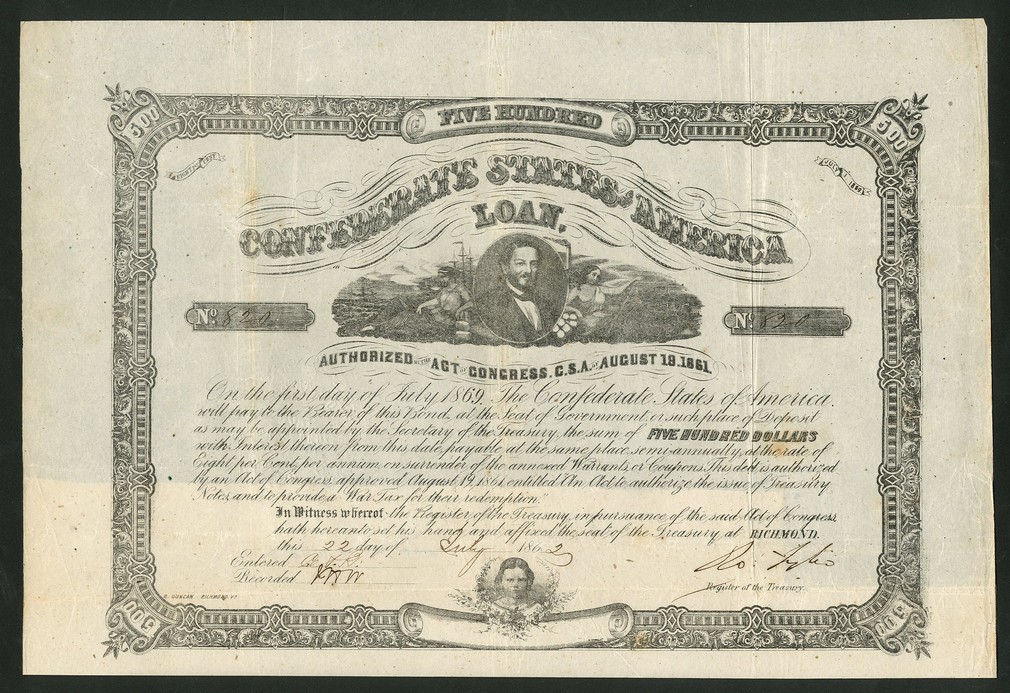 FIVE HUNDRED
500 500
JULY 1 1869
CONFEDERATE STATES OF AMERICA
LOAN,
No. 820 No. 820
AUTHORIZED BY THE ACT OF CONGRESS, C.S.A. OF AUGUST 19.1861.
On the first day of July 1869, The Confederate States of America,
will pay to the Bearer of this Bond, at the Seat of Government, or such place of Deposit
as may be appointed by the Secretary of the Treasury, the sum of FIVE HUNDRED DOLLARS
with Interest thereon from this date, payable at the same place, semi-annually, at the rate of
Eight per Cent, per annum, on surrender of the annexed Warrants or Coupons. This debt is authorized
by an Act of Congress, approved August 19, 1861, entitled "An Act to authorize the issue of Treasury
Notes, and to provide a War Tax for their redemption."
In Witness whereof the Register of the Treasury, in pursuance of the said Act of Congress,
hath hereunto set his hand, and affixed the seal of the Treasury, at RICHMOND.
this 22 day of July 1862
Entered
Recorded
Register of the Treasury.
DUNCAN RICHMOND, VA
500 500